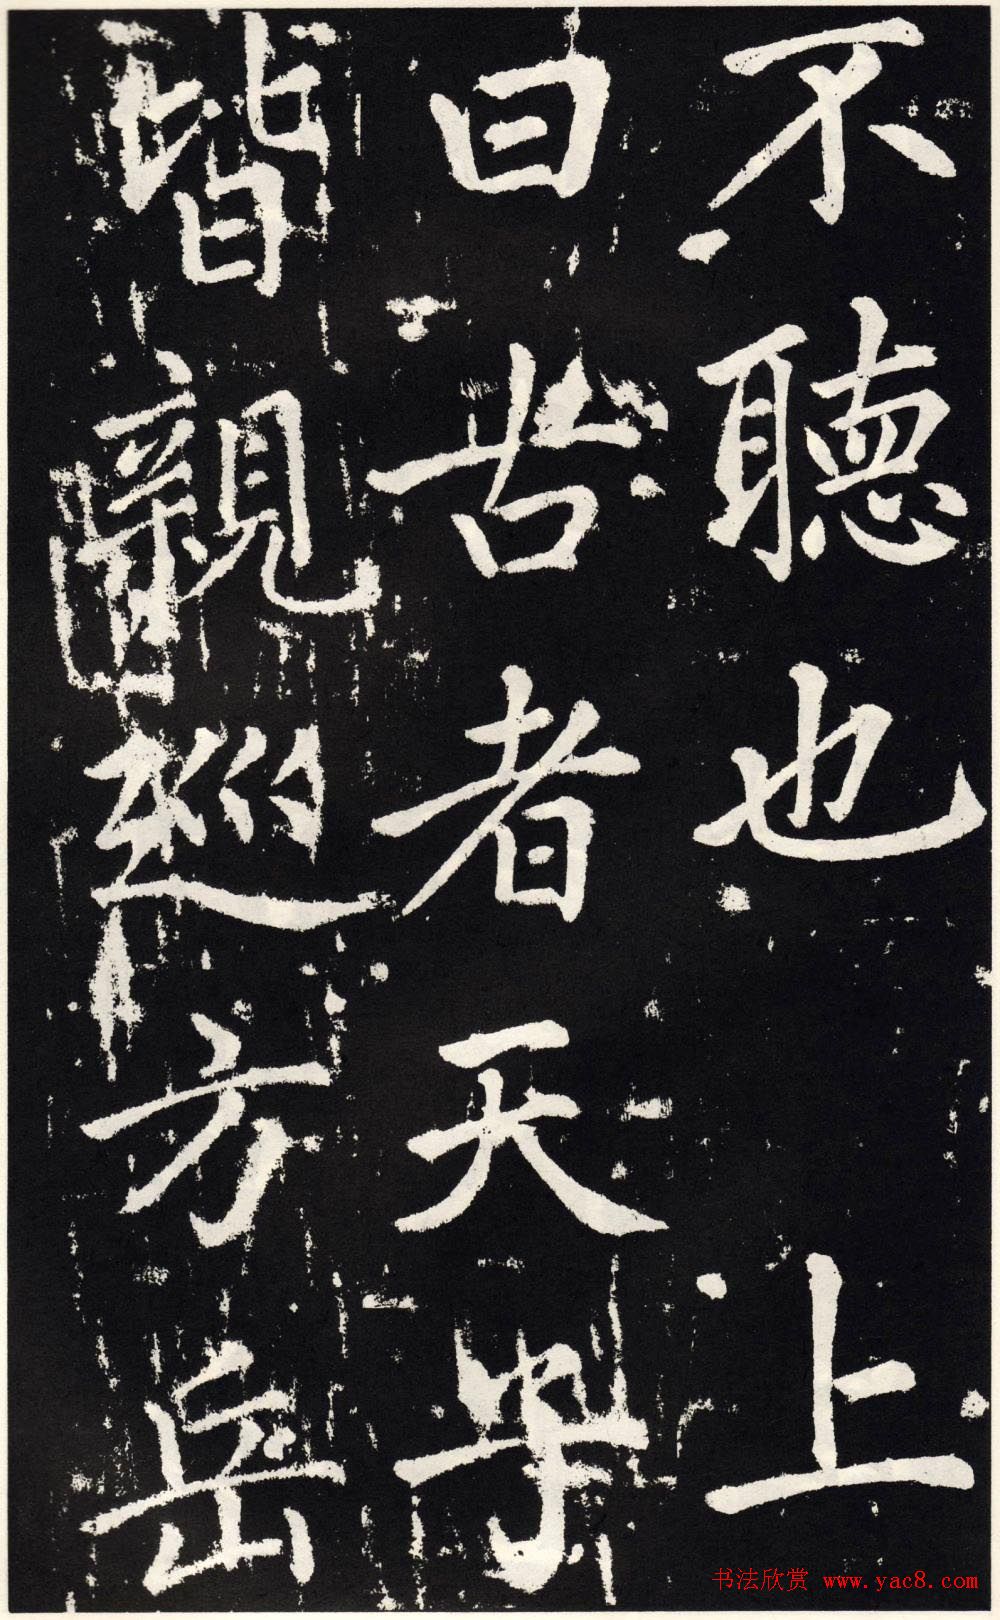 不聽也上
曰古者天子
皆親巡方岳
书法欣赏 www.yac8.com